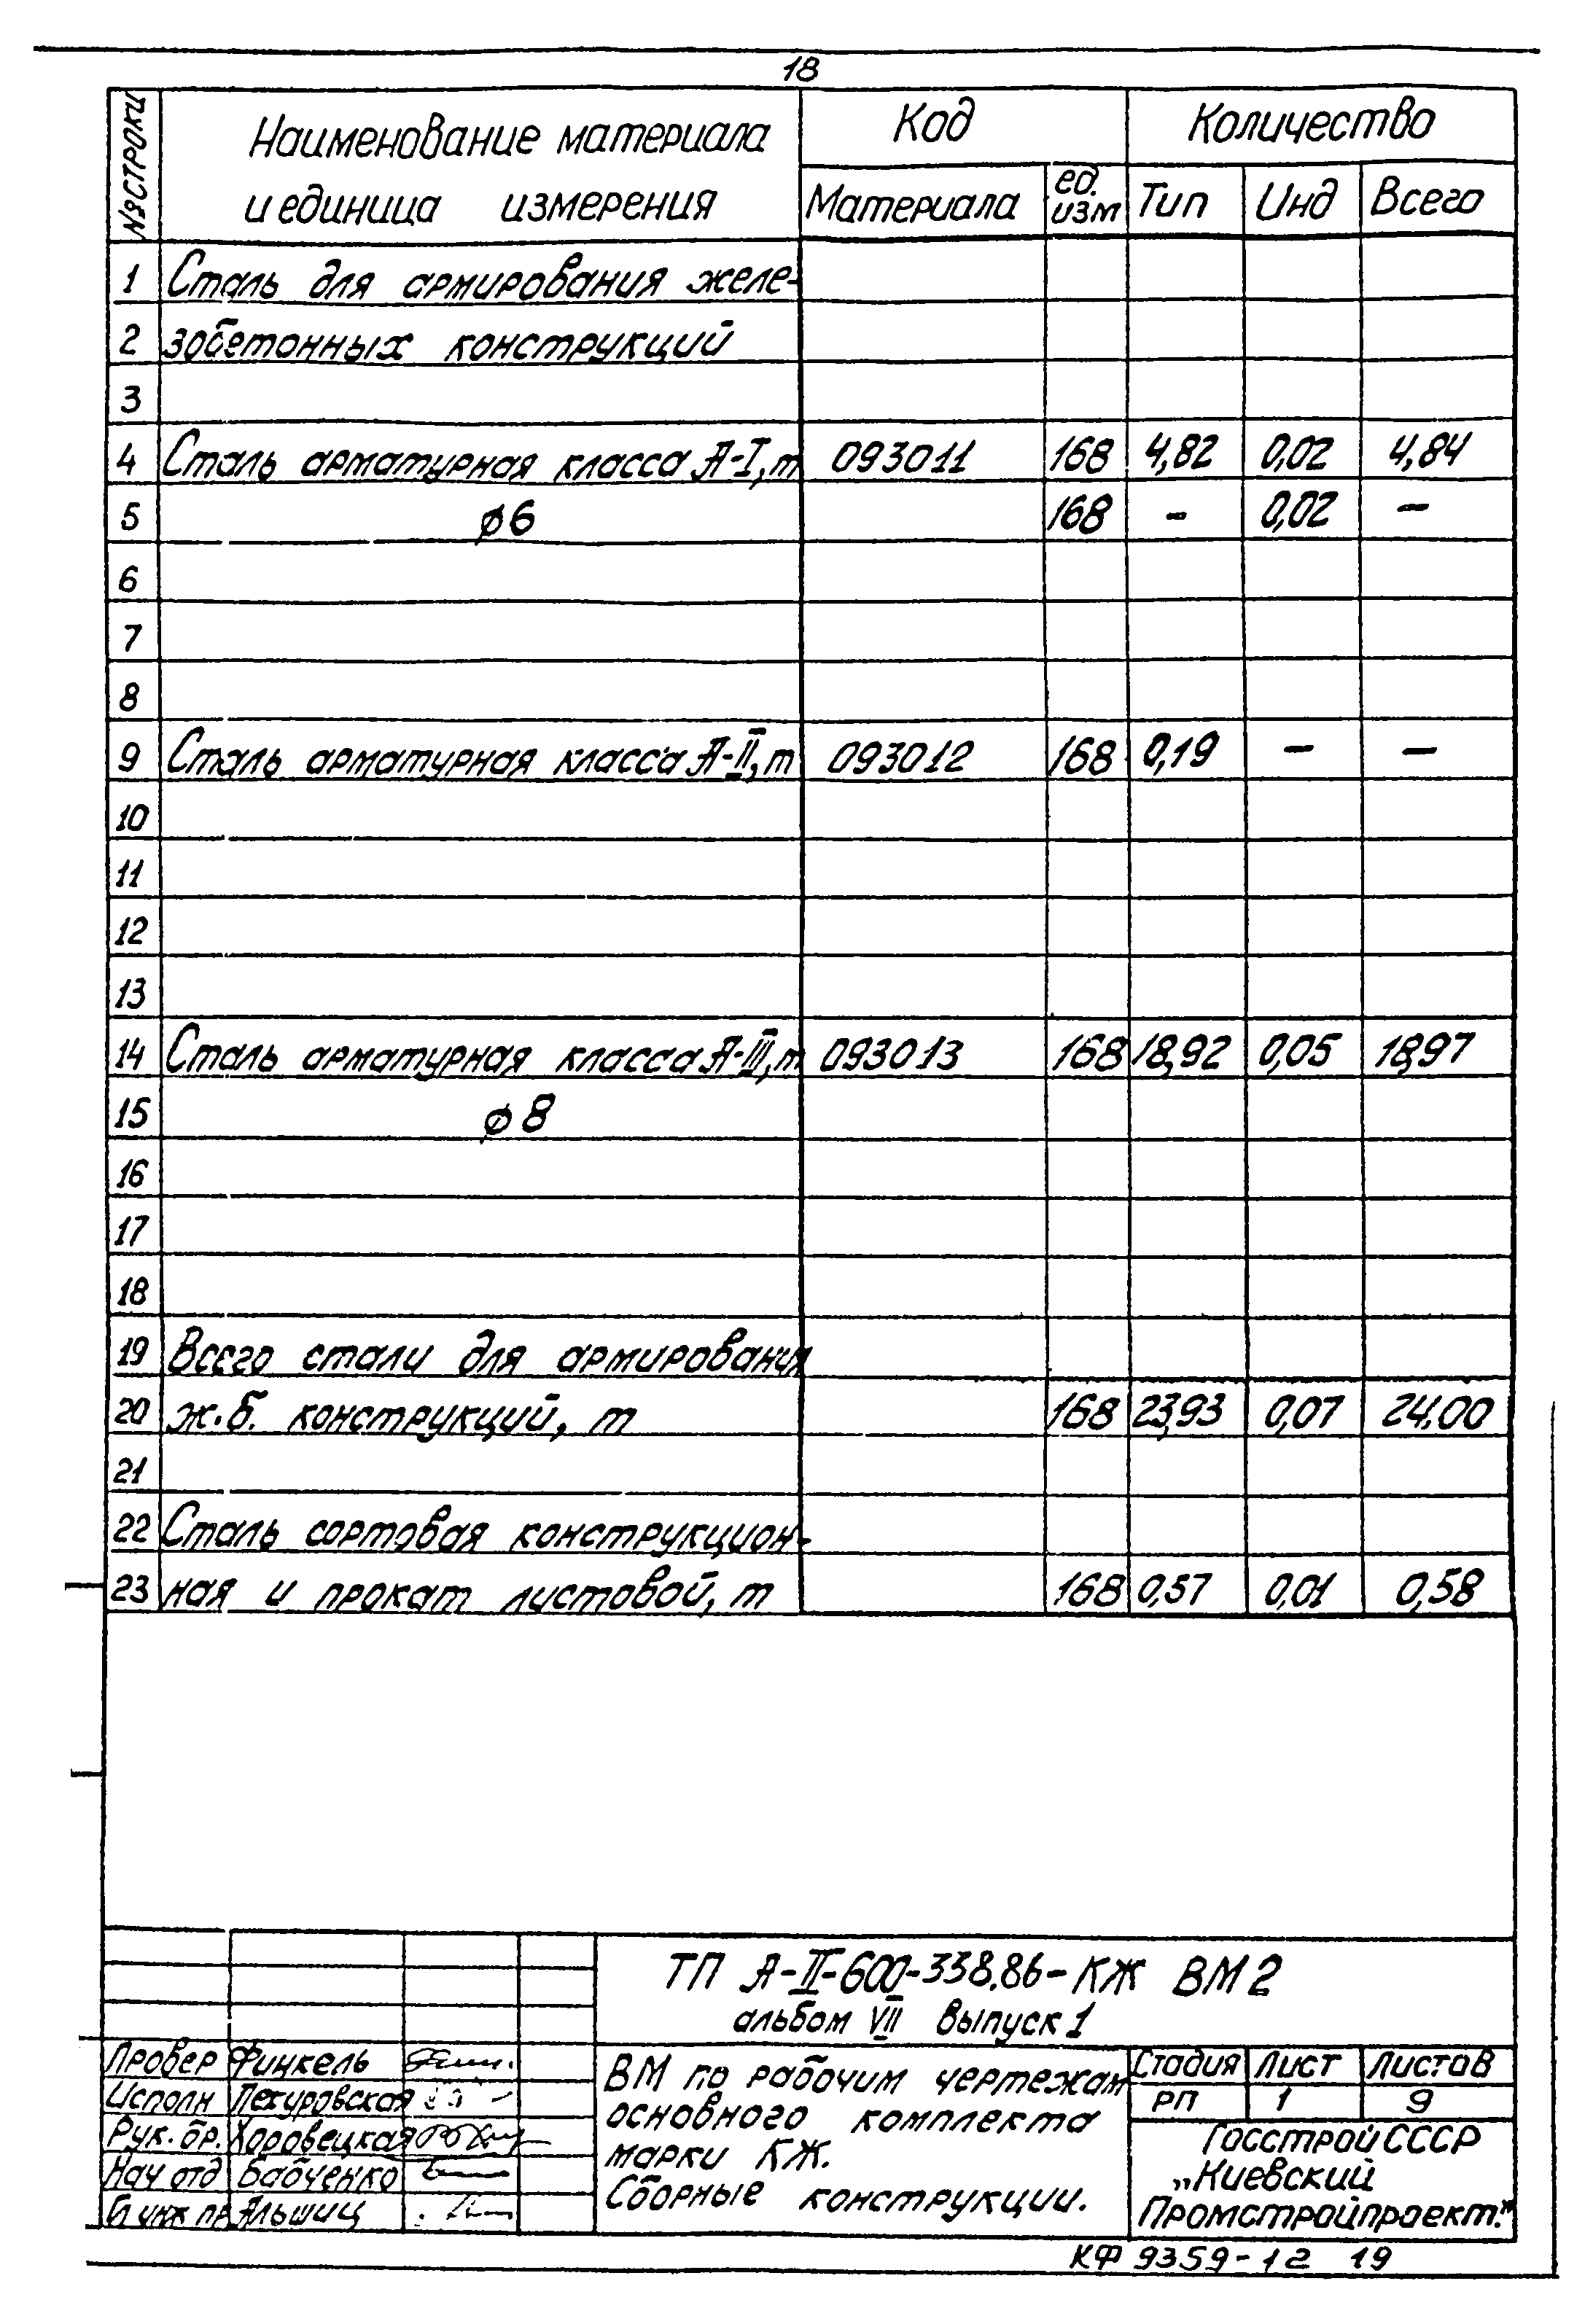 18
№ строки
Наименование материала и единица измерения
Код
Количество
Материала ед. изм Тип Инд Всего
1 Сталь для армирования желе-
2 зобетонных конструкций
3
4 Сталь арматурная класса А-I, т 093011 168 4,82 0,02 4,84
5 ⌀6 168 - 0,02 -
6
7
8
9 Сталь арматурная класса А-II, т 093012 168 0,19 - -
10
11
12
13
14 Сталь арматурная класса А-III, т 093013 168 18,92 0,05 18,97
15 ⌀8
16
17
18
19 Всего стали для армирования
20 ж.б. конструкций, т 168 23,93 0,07 24,00
21
22 Сталь сортовая конструкцион-
23 ная и прокат листовой, т 168 0,57 0,01 0,58
ТП А-II-600-338.86-КЖ ВМ2
альбом VII выпуск 1
Провер Финкель
Исполн Пекуровская
Рук. бр. Хоровецкая
Нач отд Бабченко
Гл инж пр Альшиц
ВМ по рабочим чертежам
основного комплекта
марки КЖ.
Сборные конструкции.
Стадия Лист Листов
РП 1 9
Госстрой СССР
„Киевский
Промстройпроект."
КФ 9359-12 19